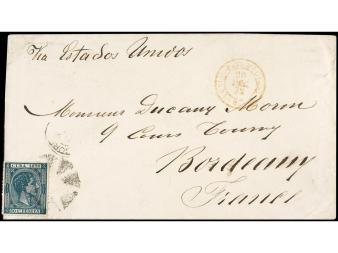 Via Estados Unidos
Monsieur Ducany Moron
9 Cours Tourny
Bordeaux
France
CUBA 1878